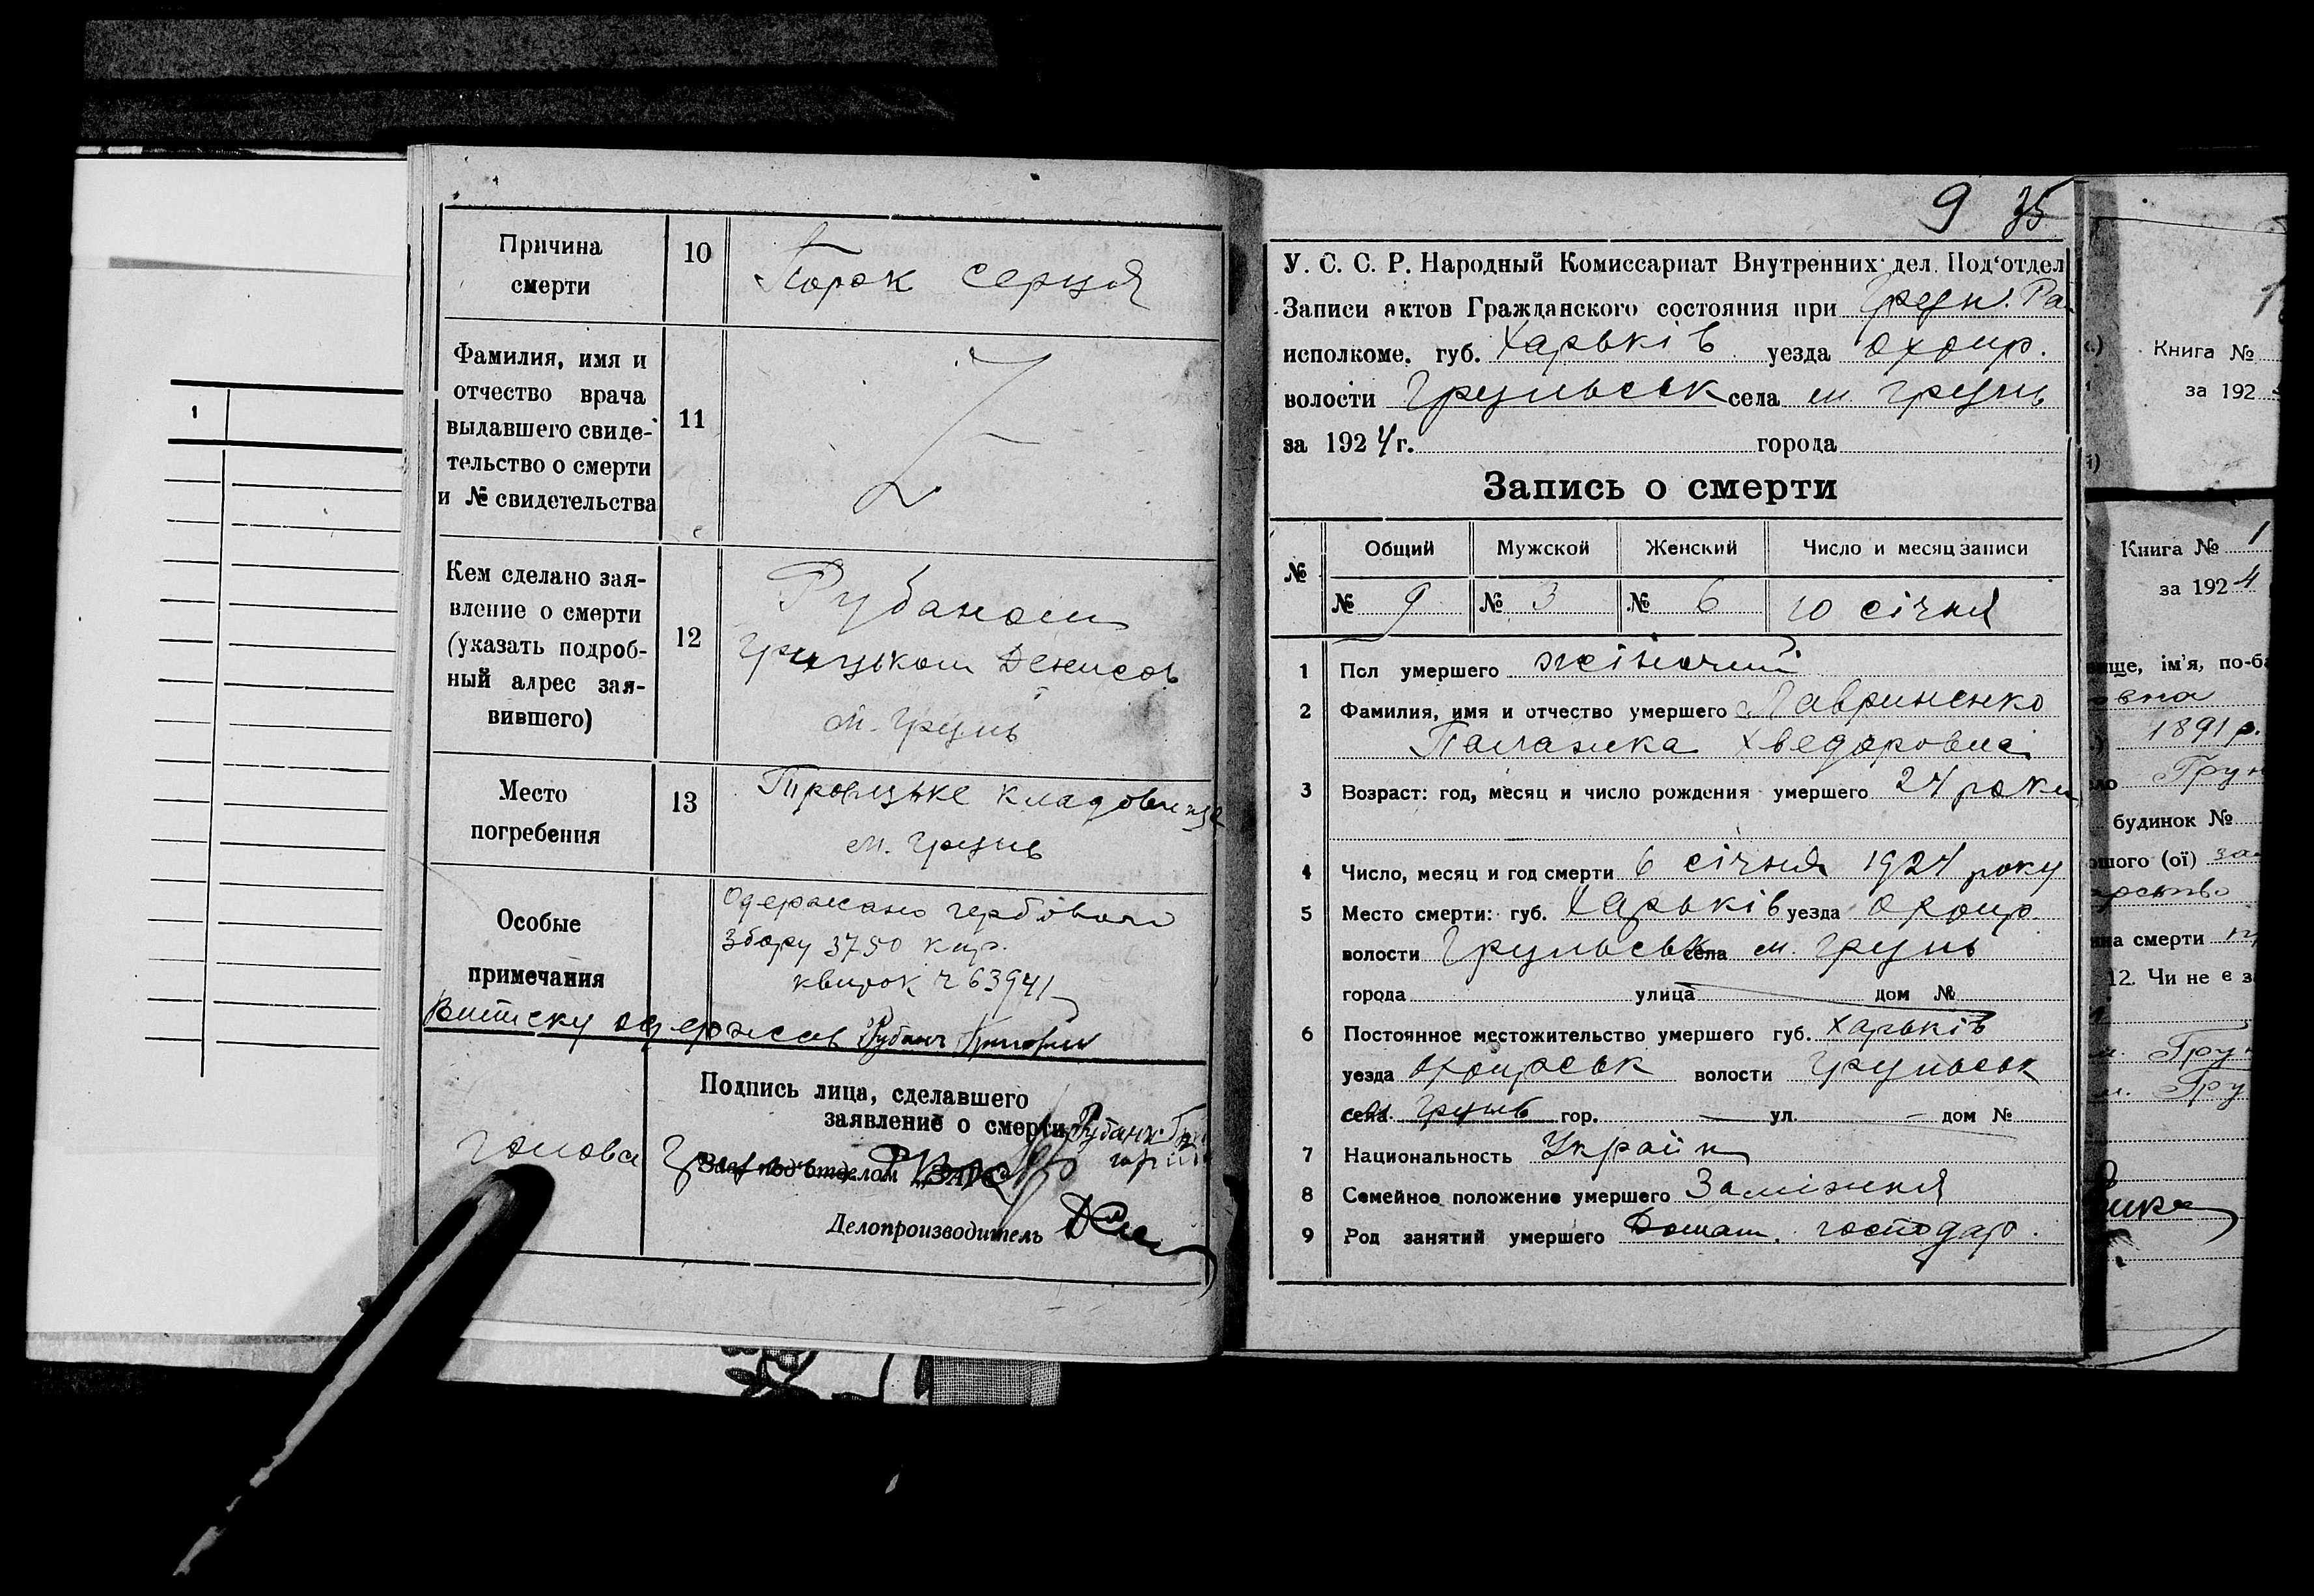 1
Причина
смерти
10
Порок серця
Фамилия, имя и
отчество врача
выдавшего свиде-
тельство о смерти
и № свидетельства
11
Z
Кем сделано зая-
вление о смерти
(указать подроб-
ный адрес зая-
вившего)
12
Рубаном
Грицьком Денисов
м. Грунь
Место
погребения
13
Троецьке кладовище
м. Грунь
Особые
примечания
Одержано гербового
збору 3750 кар.
квиток ч 63941
Виписку одержав Рубан Григорий
Подпись лица, сделавшего
заявление о смерти Рубан
голова
Зав. под'отделом ЗАГС
Делопроизводитель
9 35
У. С. С. Р. Народный Комиссариат Внутренних дел. Под'отдел
Записи актов Гражданского состояния при Грун. Ра
исполкоме. губ. Харьків уезда Охтир.
волости Груньськ села м. Грунь
за 1924 г. города
Запись о смерти
№ Общий Мужской Женский Число и месяц записи
№ 9 № 3 № 6 10 січня
1 Пол умершего жіночий
2 Фамилия, имя и отчество умершего Лавриненко
Палажка Хведоровна
3 Возраст: год, месяц и число рождения умершего 24 роки
4 Число, месяц и год смерти 6 січня 1924 року
5 Место смерти: губ. Харьків уезда Охтир.
волости Груньськ села м. Грунь
города улица дом №
6 Постоянное местожительство умершего губ. Харьків
уезда Охтирськ волости Груньськ
села м. Грунь гор. — ул. — дом №
7 Национальность Україн
8 Семейное положение умершего Заміжня
9 Род занятий умершего Домаш. господар.
Книга №
за 192
Книга № 1
за 1924
ім'я, по-ба
вна
1891 р.
Грун
будинок №
шого (ої) за
смерти
12. Чи не є з
Грун
Гру